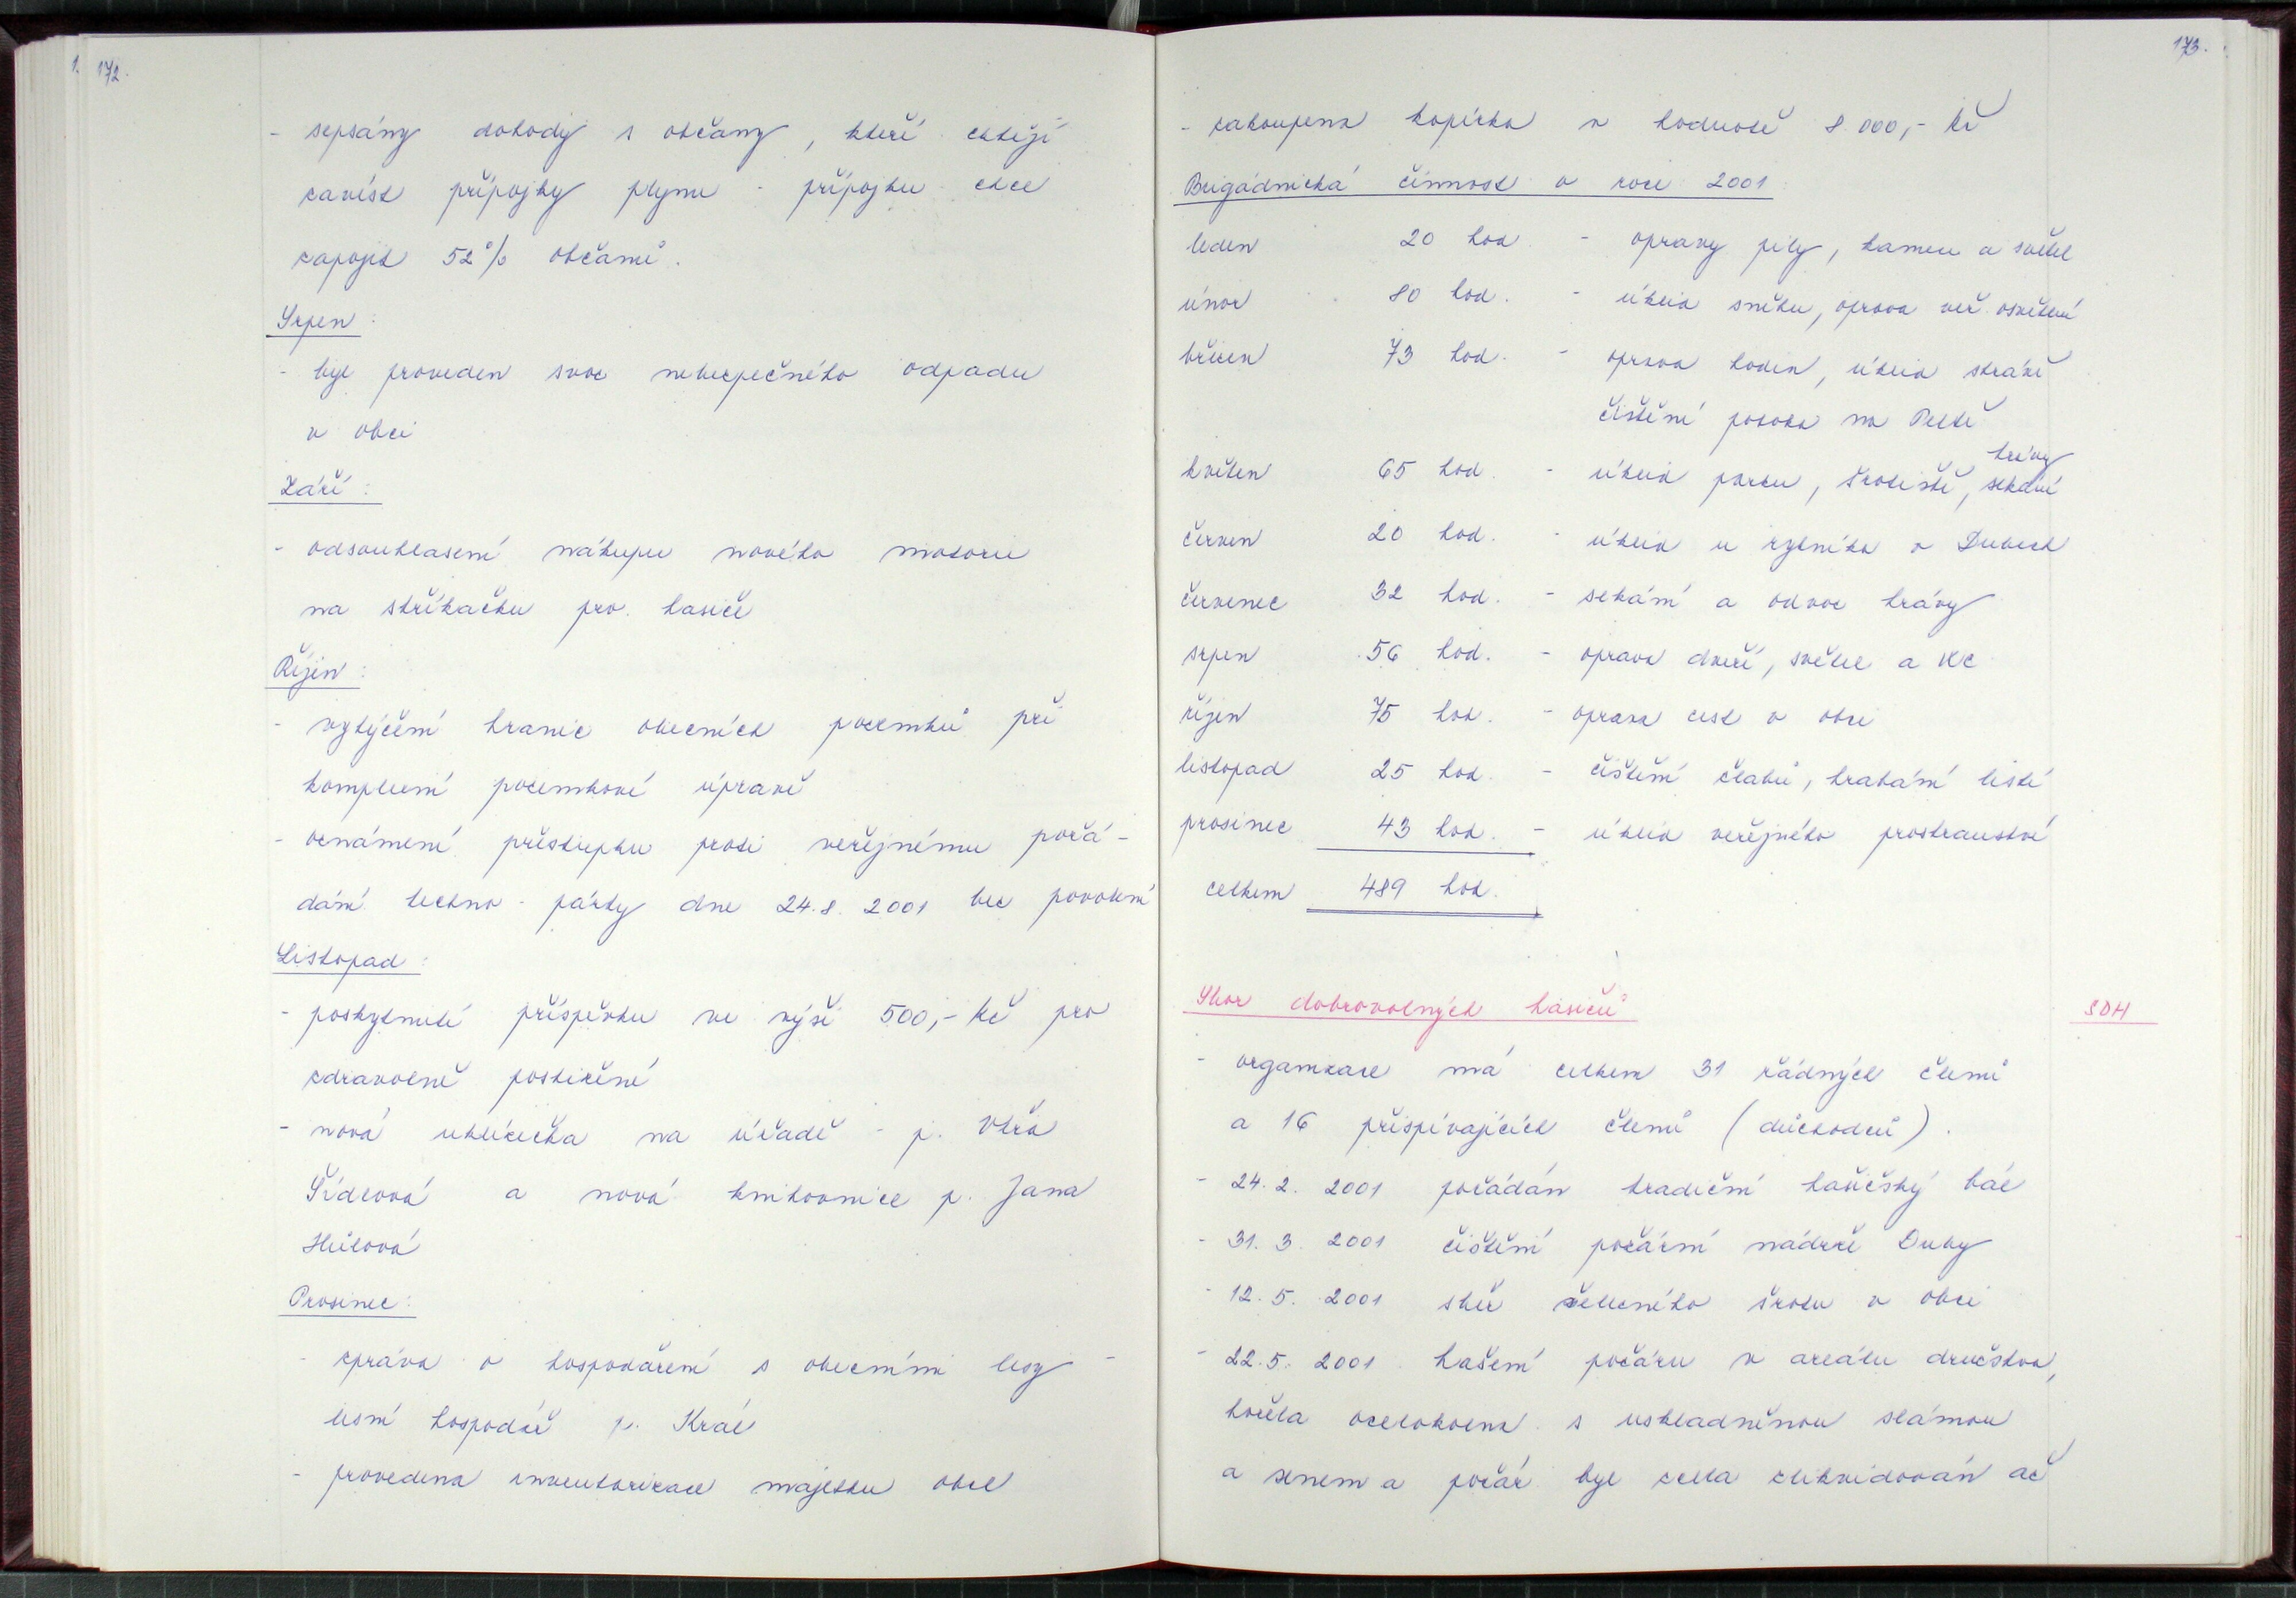 1. 172.
- sepsány dohody s občany, kteří chtějí
zavést přípojky plynu - přípojku chce
zapojit 52% občanů.
Srpen:
- byl proveden svoz nebezpečného odpadu
v obci
Září:
- odsouhlasení nákupu nového motoru
na stříkačku pro hasiče
Říjen:
- vytýčení hranic obecních pozemků při
komplexní pozemkové úpravě
- oznámení přestupku proti veřejnému pořá-
dání techno-párty dne 24.8. 2001 bez povolení
Listopad:
- poskytnutí příspěvku ve výši 500,- Kč pro
zdravotně postižené
- nová uklízečka na úřadě - p. Věra
Šídlová a nová knihovnice p. Jana
Hůlová
Prosinec:
- zpráva o hospodaření s obecními lesy -
lesní hospodář p. Král
- provedena inventarizace majetku obce
173.
- zakoupena kopírka v hodnotě 8.000,- Kč
Brigádnická činnost v roce 2001
leden 20 hod. - opravy pily, kamen a světel
únor 80 hod. - úklid sněhu, oprava veř. osvětlení
březen 73 hod. - oprava hodin, úklid stráně
čištění potoka na Peltě
květen 65 hod. - úklid parku, šrotiště, sekání trávy
červen 20 hod. - úklid u rybníka v Dubech
červenec 32 hod. - sekání a odvoz trávy
srpen 56 hod. - oprava dveří, světel a WC
říjen 75 hod. - oprava cest v obci
listopad 25 hod. - čištění žlabů, hrabání listí
prosinec 43 hod. - úklid veřejného prostranství
celkem 489 hod.
Sbor dobrovolných hasičů SDH
- organizace má celkem 31 řádných členů
a 16 přispívajících členů (důchodců).
- 24. 2. 2001 pořádán tradiční hasičský bál
- 31. 3. 2001 čištění požární nádrže Duby
- 12. 5. 2001 sběr železného šrotu v obci
- 22. 5. 2001 hašení požáru v areálu družstva,
hořela ocelokolna s uskladněnou slámou
a senem a požár byl zcela zlikvidován až